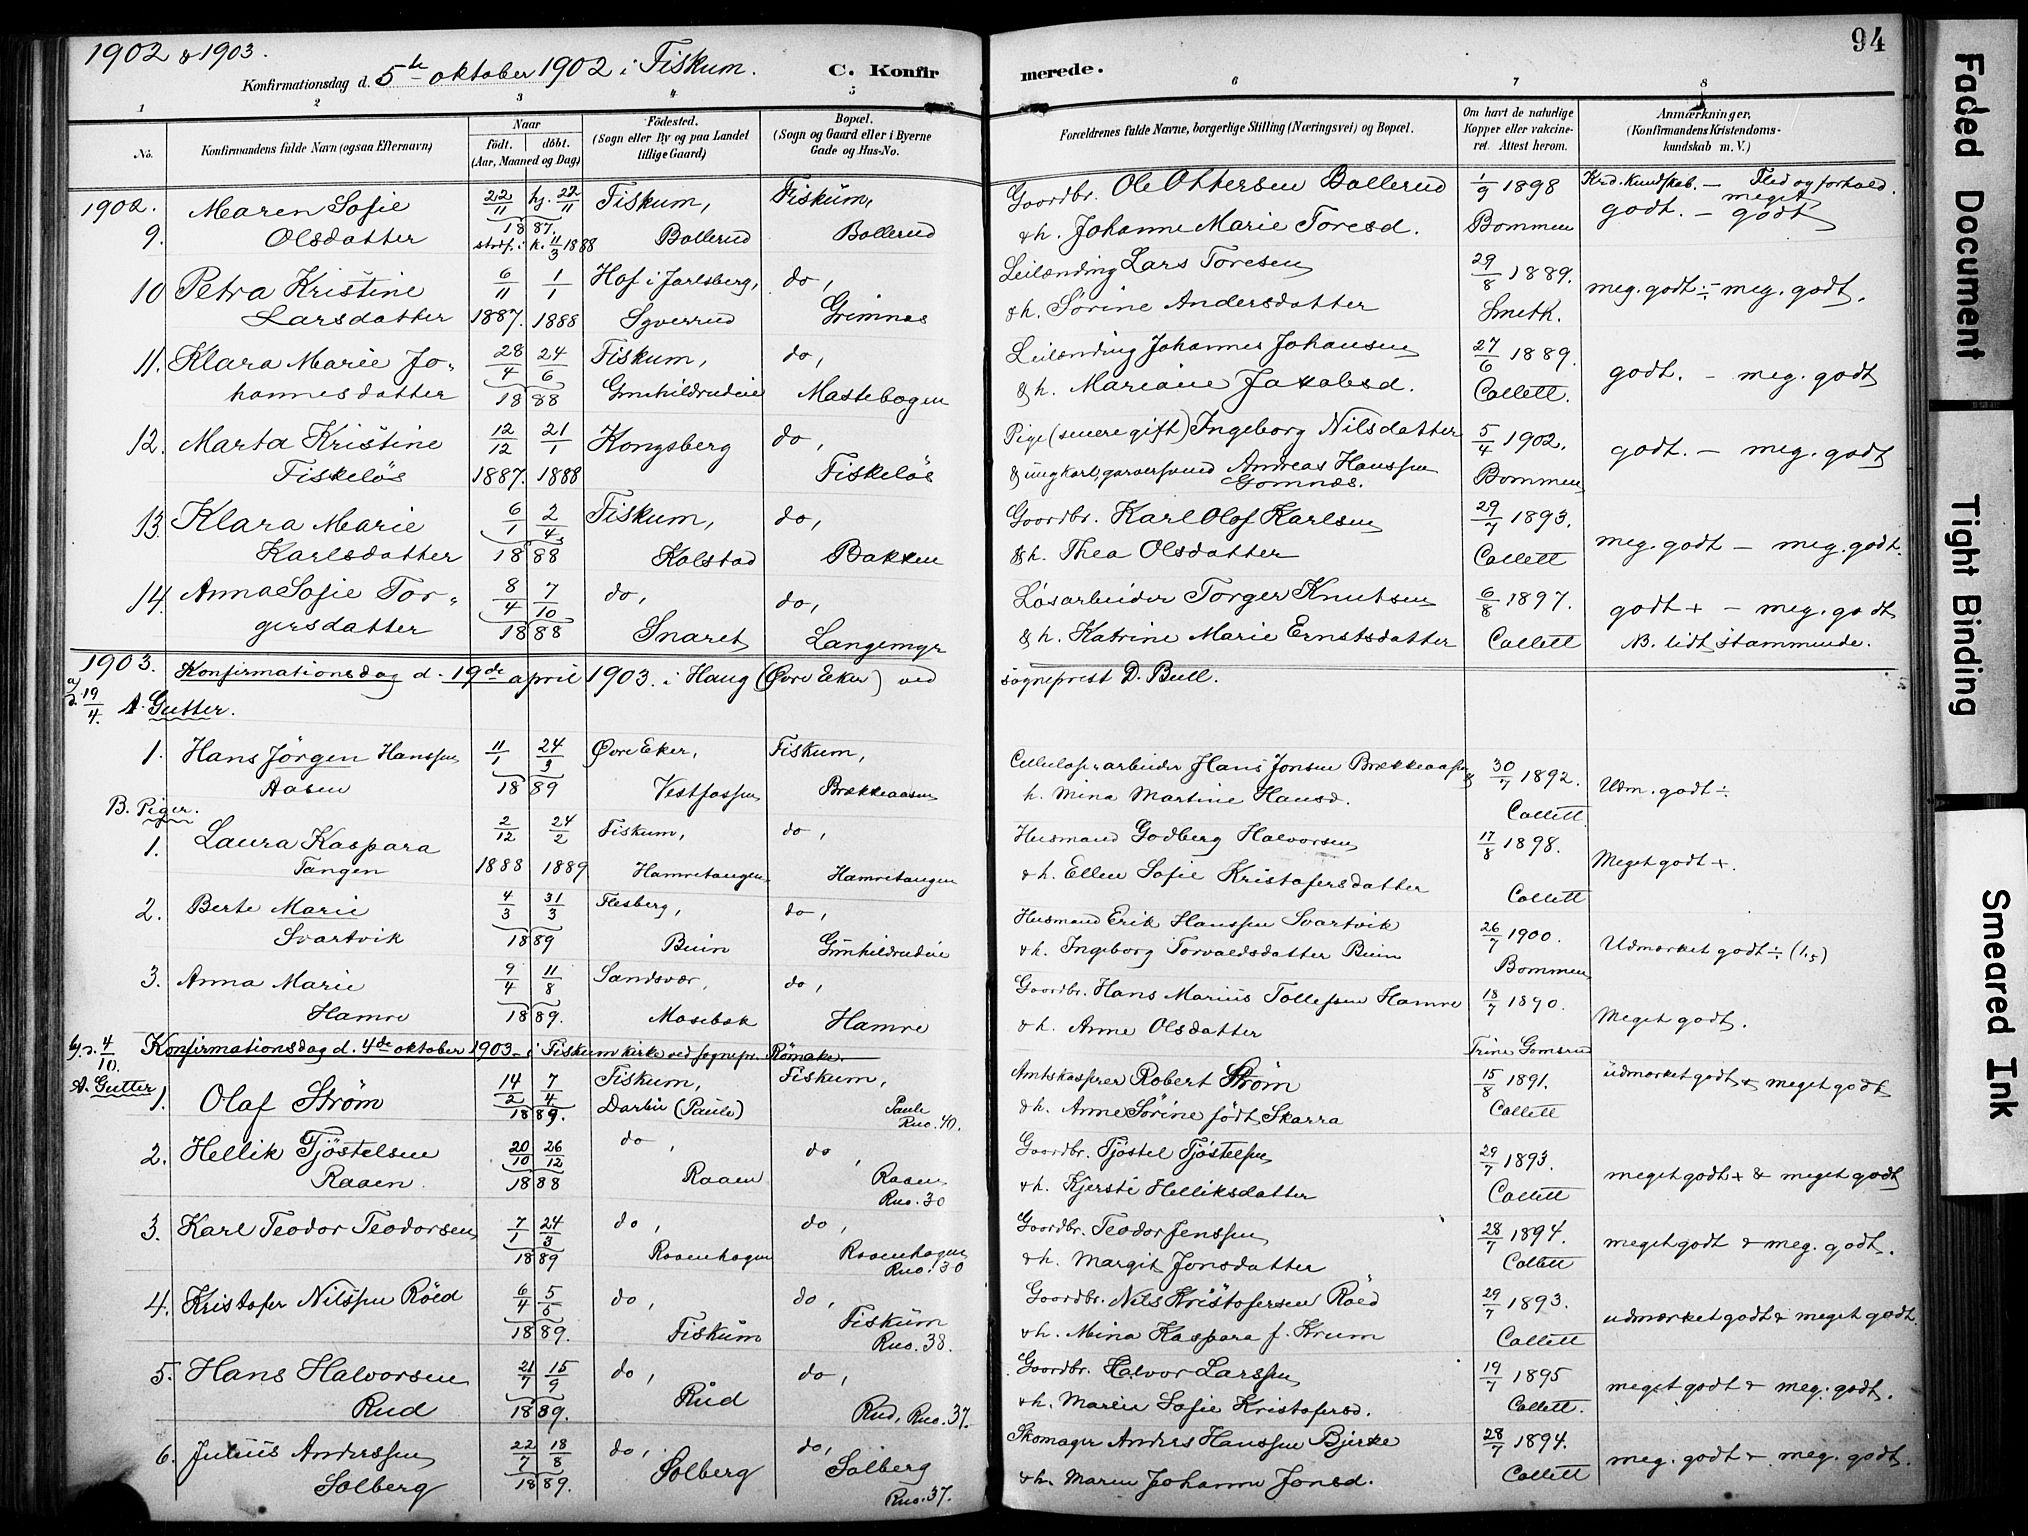 1902 & 1903.
Konfirmationsdag d. 5te oktober 1902 i Fiskum.
C. Konfirmerede.
94
1 2 3 4 5 6 7 8
No.
Konfirmandens fulde Navn (ogsaa Efternavn)
Naar født. døbt. (Aar, Maaned og Dag)
Fødested. (Sogn eller By og paa Landet tillige Gaard)
Bopæl. (Sogn og Gaard eller i Byerne Gade og Hus-No.
Forældrenes fulde Navne, borgerlige Stilling (Næringsvei) og Bopæl.
Om havt de naturlige Kopper eller vakcineret. Attest herom.
Anmærkninger, (Konfirmandens Kristendomskundskab m. V.)
1902. Maren Sofie 22/11 hj. 22/11 Fiskum, Fiskum, Gaardbr. Ole Ottersen Bollerud 1/9 1898 Krd. kundskab. — Flid og forhold.
9. Olsdatter 1887. stadf. i k. 11/3 1888 Bollerud Bollerud & h. Johanne Marie Toresd. Bommen godt. — meget godt
10 Petra Kristine 6/11 1/1 Hof i Jarlsberg, do, Leilænding Lars Toresen 29/8 1889. meg. godt ÷ — meg. godt.
Larsdatter 1887. 1888 Syverrud Grimnæs & h. Sørine Andersdatter Smetk.
11. Klara Marie Jo- 28/4 24/6 Fiskum, do, Leilænding Johannes Johansen 27/6 1889. godt. — meg. godt
hannesdatter 1888 Gunhildrudeie Mastebogen & h. Mariane Jakobsd. Collett.
12. Marta Kristine 12/12 21/1 Kongsberg do, Pige (senere gift) Ingeborg Nilsdatter 5/4 1902. godt. — meg. godt
Fiskeløs 1887. 1888 Fiskeløs & ungkarl, garversvend Andreas Hanssen Gomnæs. Bommen
13. Klara Marie 6/1 2/4 Fiskum, do, Gaardbr. Karl Olof Karlsen 29/7 1893. meg. godt — meg. godt.
Karlsdatter 1888 Kolstad Bakken & h. Thea Olsdatter Collett
14. Anna Sofie Tor- 8/4 7/10 do, do, Løsarbeider Torger Knutsen 6/8 1897. godt + — meg. godt
gersdatter 1888 Snaret Langemyr & h. Katrine Marie Ernstsdatter Collett N.B. lidt stammende.
1903. Konfirmationsdag d. 19de april 1903. i Haug (Øvre Eker) ved sogneprest D. Bull.
a) d. 19/4. A. Gutter.
1. Hans Jørgen Hanssen 11/1 24/3 Øvre Eker, Fiskum, Cellulosearbeider Hans Jonsen Brækkeaasen & 30/7 1892. Udm. godt ÷
Aasen 1889 Vestfossen Brækkeaasen h. Mina Martine Hansd. Collett
B. Piger.
1. Laura Kaspara 2/12 24/2 Fiskum, do, Husmand Godberg Halvorsen 17/8 1898. Meget godt +.
Tangen 1888 1889 Hamretangen Hamretangen & h. Ellen Sofie Kristofersdatter Collett
2. Berte Marie 4/3 31/3 Flesberg, do, Husmand Erik Hanssen Svartvik 26/7 1900. Udmærket godt ÷ (1,5)
Svartvik 1889 Buin Gunhildrudeie & h. Ingeborg Torvaldsdatter Buin Bommen
3. Anna Marie 9/4 11/8 Sandsvær, do, Gaardbr. Hans Marius Tollefsen Hamre 18/7 1890. Meget godt.
Hamre 1889. Mosebæk Hamre & h. Anne Olsdatter Trine Gomsrud
b) d. 4/10. Konfirmationsdag d. 4de oktober 1903 — i Fiskum kirke ved sognepr. Rømcke.
A. Gutter 1. Olaf Strøm 14/2 7/4 Fiskum, Fiskum, Amtskasserer Robert Strøm 15/8 1891. udmærket godt & meget godt
1889. Darbu (Paule) Paule Rno. 40. & h. Anne Sørine født Skarra Collett
2. Hellik Tjøstelsen 20/10 26/12 do, do, Gaardbr. Tjøstel Tjøstelsen 29/7 1893. meget godt + & meget godt
Raaen 1888 Raaen Raaen Rno. 30 & h. Kjersti Helliksdatter Collett
3. Karl Teodor Teodorsen 7/1 24/3 do, do, Gaardbr. Teodor Jenssen 28/7 1894. meget godt & meg. godt.
1889 Raaenhagen Raaenhagen Rno. 30 & h. Margit Jonsdatter Collett
4. Kristofer Nilssen Røed 6/4 5/5 do, do, Gaardbr. Nils Kristofersen Røed 29/7 1893. udmærket godt & meget godt.
1889. Fiskum Fiskum Rno. 38. & h. Mina Kaspara f. Krum Collett
5. Hans Halvorsen 21/7 15/9 do, do, Gaardbr. Halvor Larssen 19/7 1895 meget godt & meg. godt.
Rud 1889. Rud Rud, Rno. 37. & h. Maren Sofie Kristofersd. Collett.
6. Julius Anderssen 22/7 18/8 do, do, Skomager Anders Hanssen Bjerke 28/7 1894. meg. godt & meg. godt.
Solberg 1889. Solberg Solberg Rno. 37. & h. Maren Johanne Jonsd. Collett
Faded Document
Tight Binding
Smeared Ink